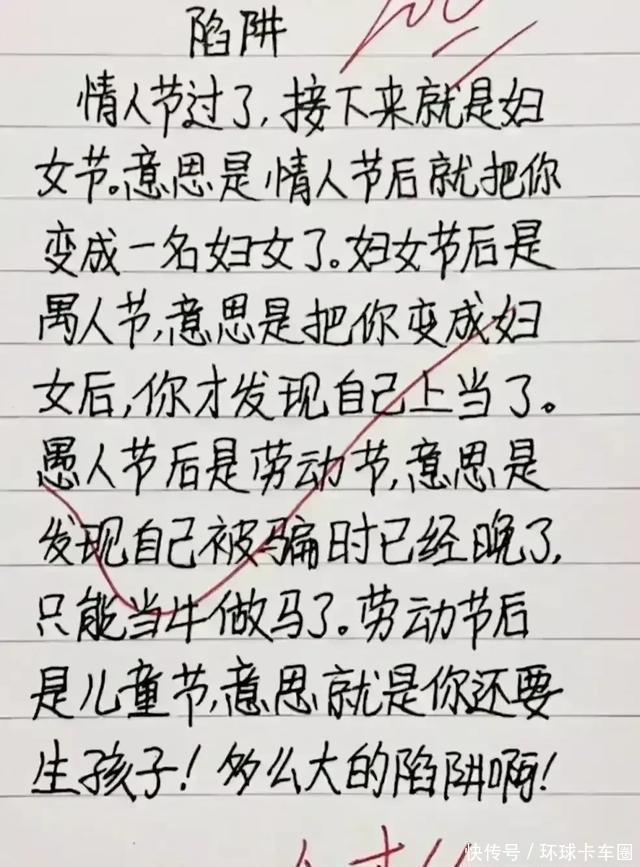 陷阱
情人节过了,接下来就是妇
女节。意思是情人节后就把你
变成一名妇女了。妇女节后是
禺人节,意思是把你变成妇
女后,你才发现自己上当了。
愚人节后是劳动节,意思是
发现自己被骗时已经晚了,
只能当牛做马了。劳动节后
是儿童节,意思就是你还要
生孩子!多么大的陷阱啊!
快传号/环球卡车圈